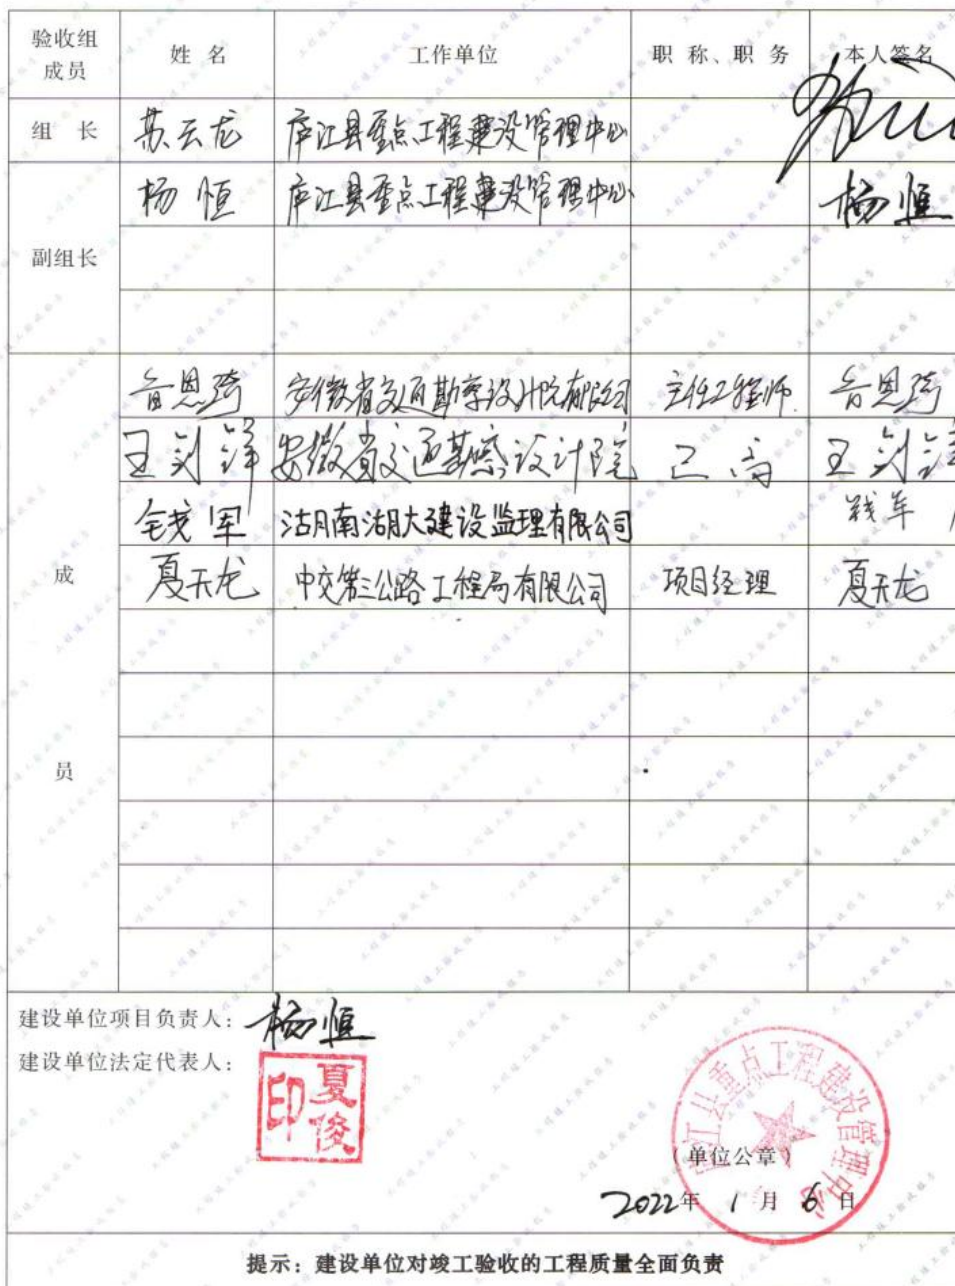 验收组成员 姓 名 工作单位 职 称、职 务 本人签名
组 长 苏云龙 庐江县重点工程建设管理中心
副组长 杨恒 庐江县重点工程建设管理中心 杨恒
鲁思琦 安徽省交通勘察设计院有限公司 主任工程师 鲁思琦
王剑锋 安徽省交通勘察设计院 正高 王剑锋
钱军 湖南湖大建设监理有限公司 钱军
成员 夏天龙 中交第三公路工程局有限公司 项目经理 夏天龙
建设单位项目负责人：杨恒
建设单位法定代表人：夏俊印
庐江县重点工程建设管理中心
（单位公章）
2022年 1月 6日
提示：建设单位对竣工验收的工程质量全面负责